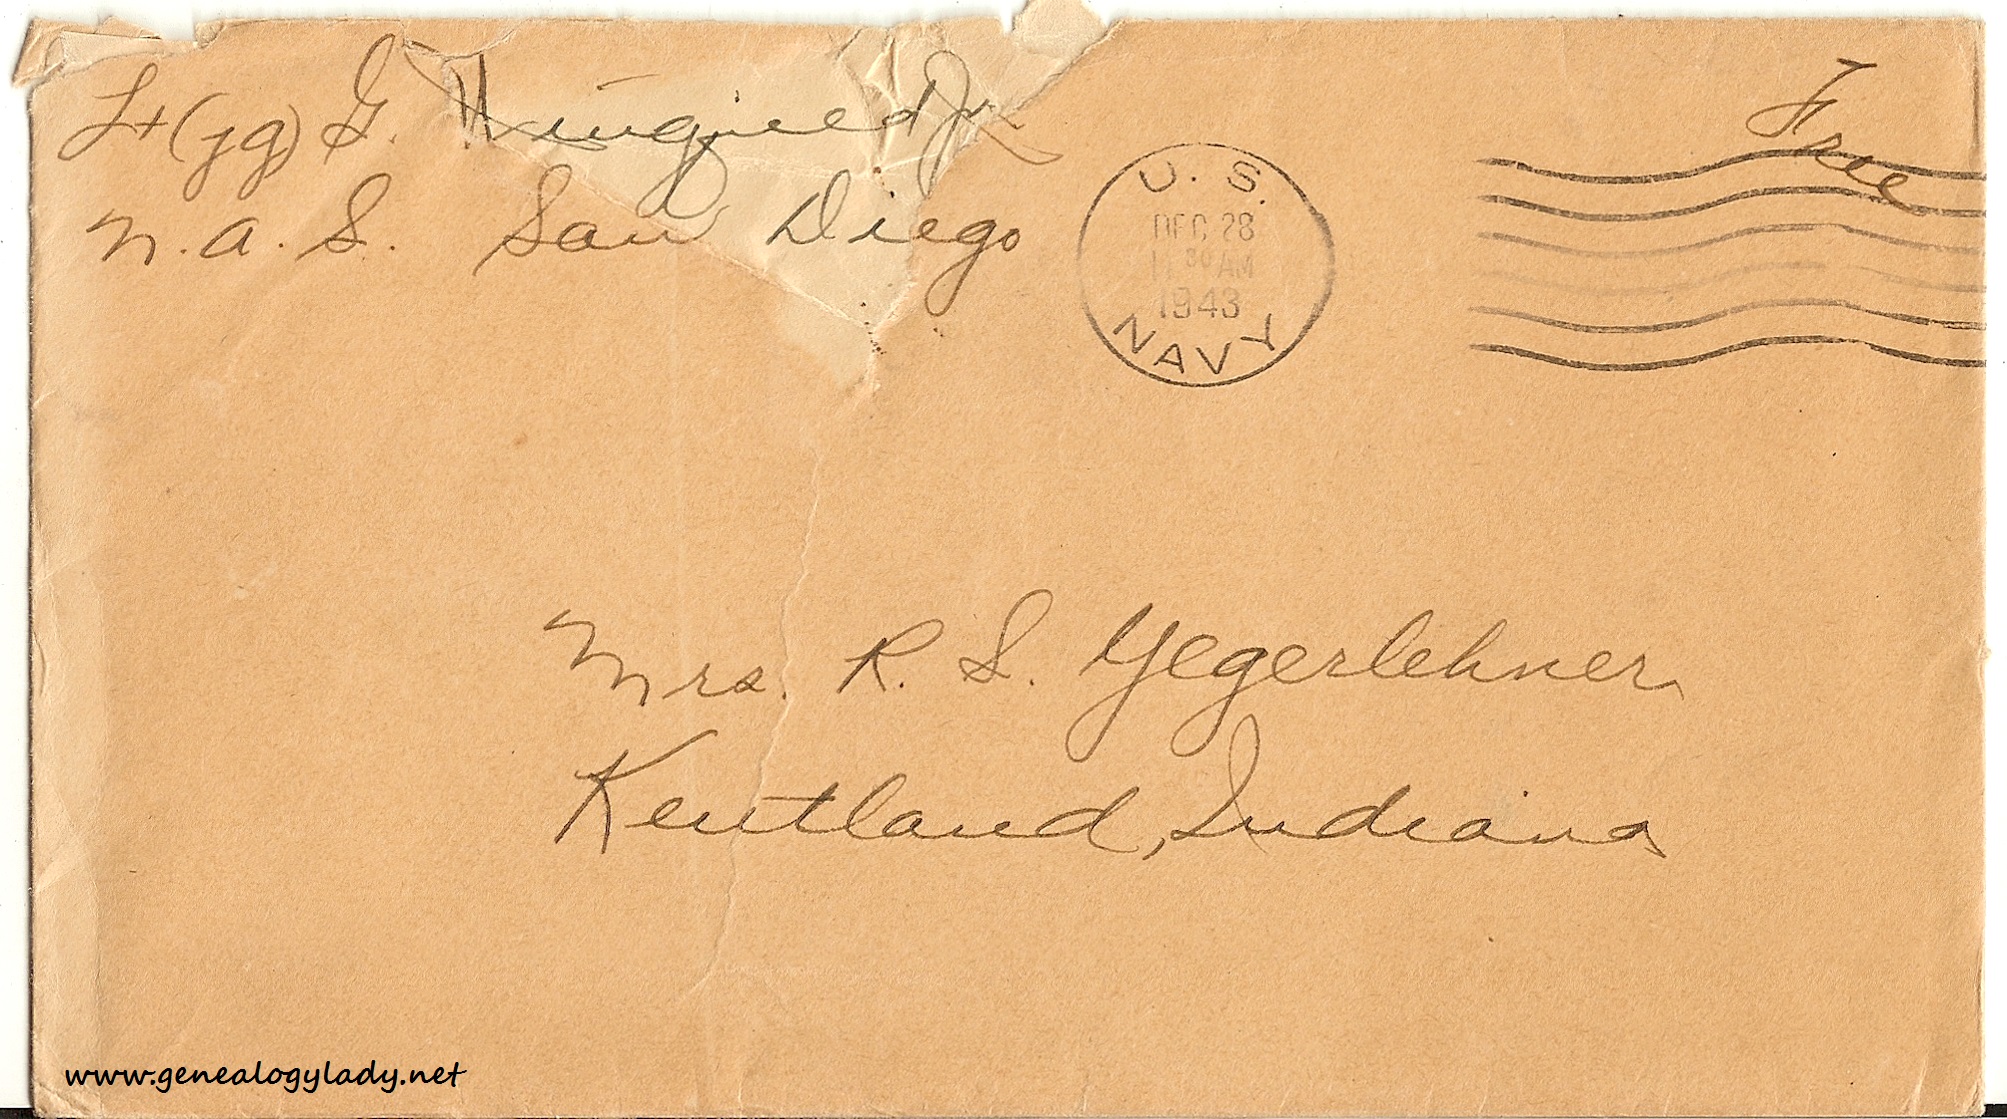 Lt(jg) G. Wingfield Jr
N.A.S. San Diego
Free
U.S.
DEC 28
11 30 AM
1943
NAVY
Mrs. R. S. Yegerlehner
Kentland, Indiana
www.genealogylady.net